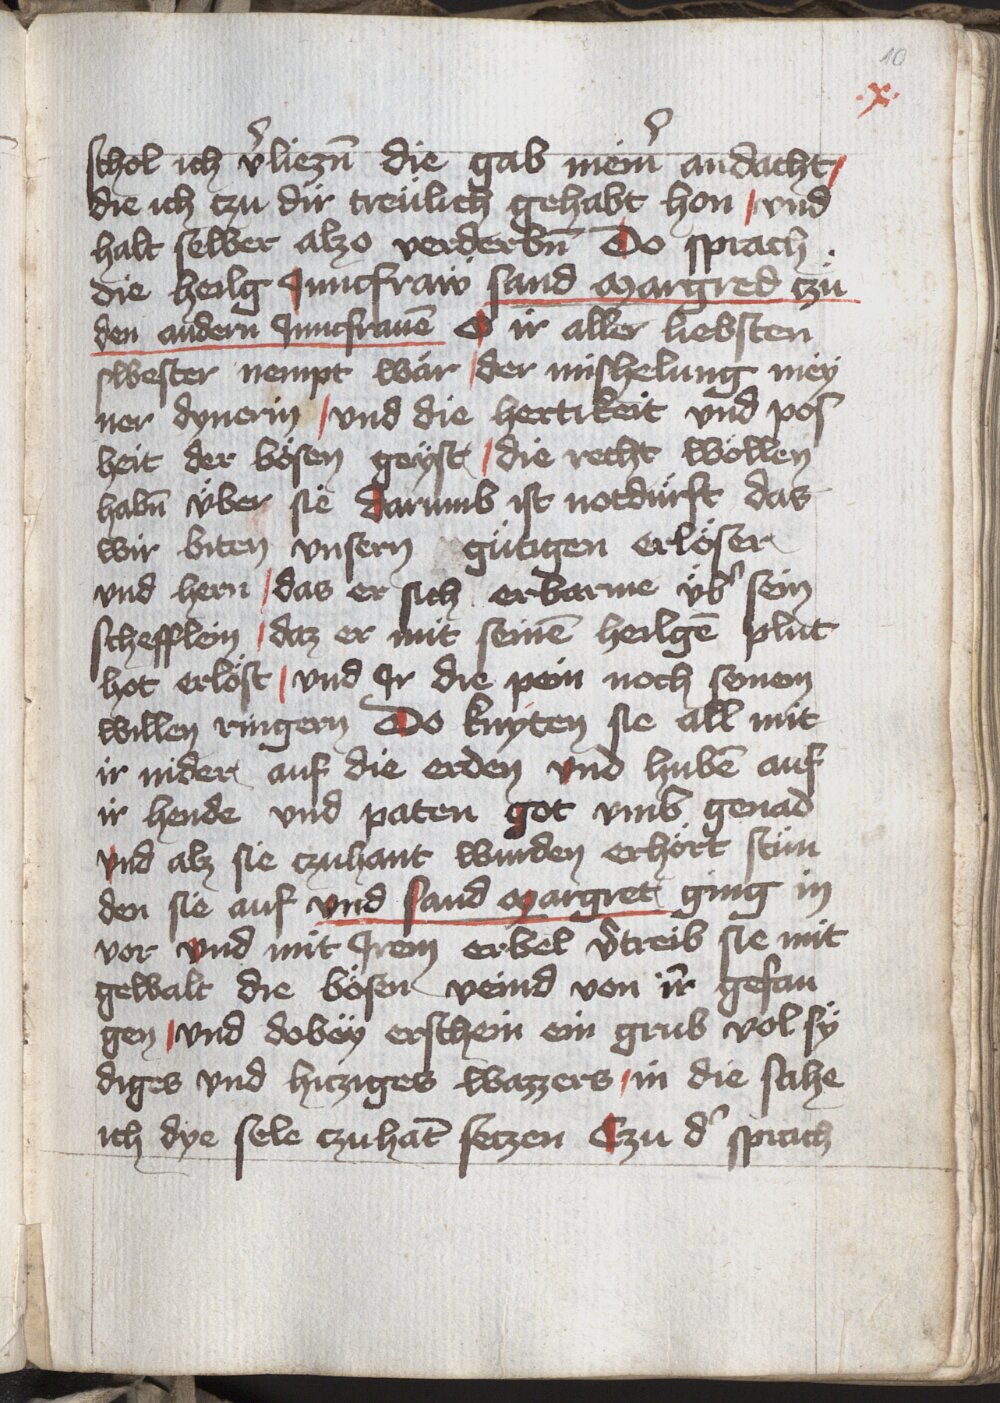 10
.x.
schol ich v̄liezn̄ die gab mein̄ andacht /
die ich czu dir treülich gehabt hon / vnd
halt selber alzo verderbn̄ Do sprach
die heilg Junckfraw sand Margred czü
den andern Junckfrauē O ir aller liebsten
swester nempt war / der mishelung mey
ner dynerin / vnd die hertikeit vnd pos
heit der bösen geyst / die recht wöllen
habn̄ v̈ber sie darumb ist notdürft das
wir biten vnsern gütigen erlöser
vnd hern / das er sich erbarme v̈b' sein
schefflein / daz er mit seinē heilgē plut
hot erlöst / vnd Ir die pein noch seinem
willen ringern Do knyten sie all mit
ir nider auf die erden vnd hubē auf
ir hende vnd paten got vmb genad
vnd alz sie czuhant wurden erhört stün
den sie auf vnd sand Margret ging in
vor vnd mit Irem erbel v̄treib sie mit
gewalt die bösen veind von ir̄ gefan
gen / vnd dobey erschein ein grub vol sy
diges vnd hicziges wazzers / in die sahe
ich dye sele czuhāt seczen Czu d' sprach